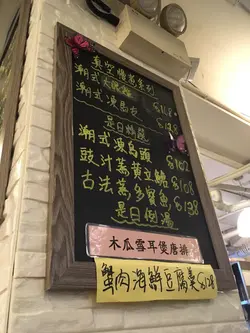 真空
潮式 $168
潮式凍馬友 $128
是日精選
潮式凍烏頭 $102
豉汁蒸黃立鱠 $108
古法蒸多寶魚 $138
是日例湯
木瓜雪耳煲唐排
蟹肉海鮮豆腐羹 $128